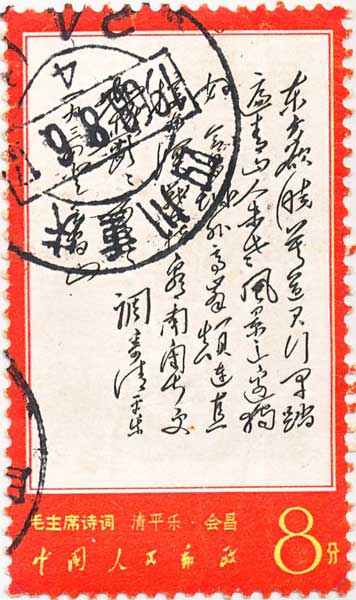 东方欲晓莫道君行早踏
遍青山人未老风景这边独
好会昌城外高峯颠连直
接东溟战士指看南粤更
加郁郁葱葱
调寄清平乐
毛主席诗词 清平乐·会昌
中国人民邮政
8分
四川重庆